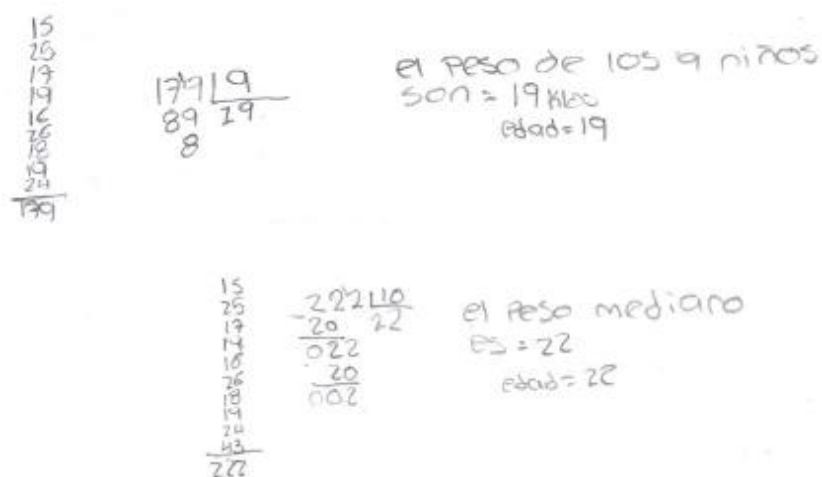 15
25
17
19
16
26
18
19
24
179
179 9
89 19
8
el peso de los 9 niños
son = 19 kilos
edad = 19
15
25
17
19
16
26
18
19
24
43
222
222 10
- 20 22
022
20
002
el peso mediano
es = 22
edad = 22